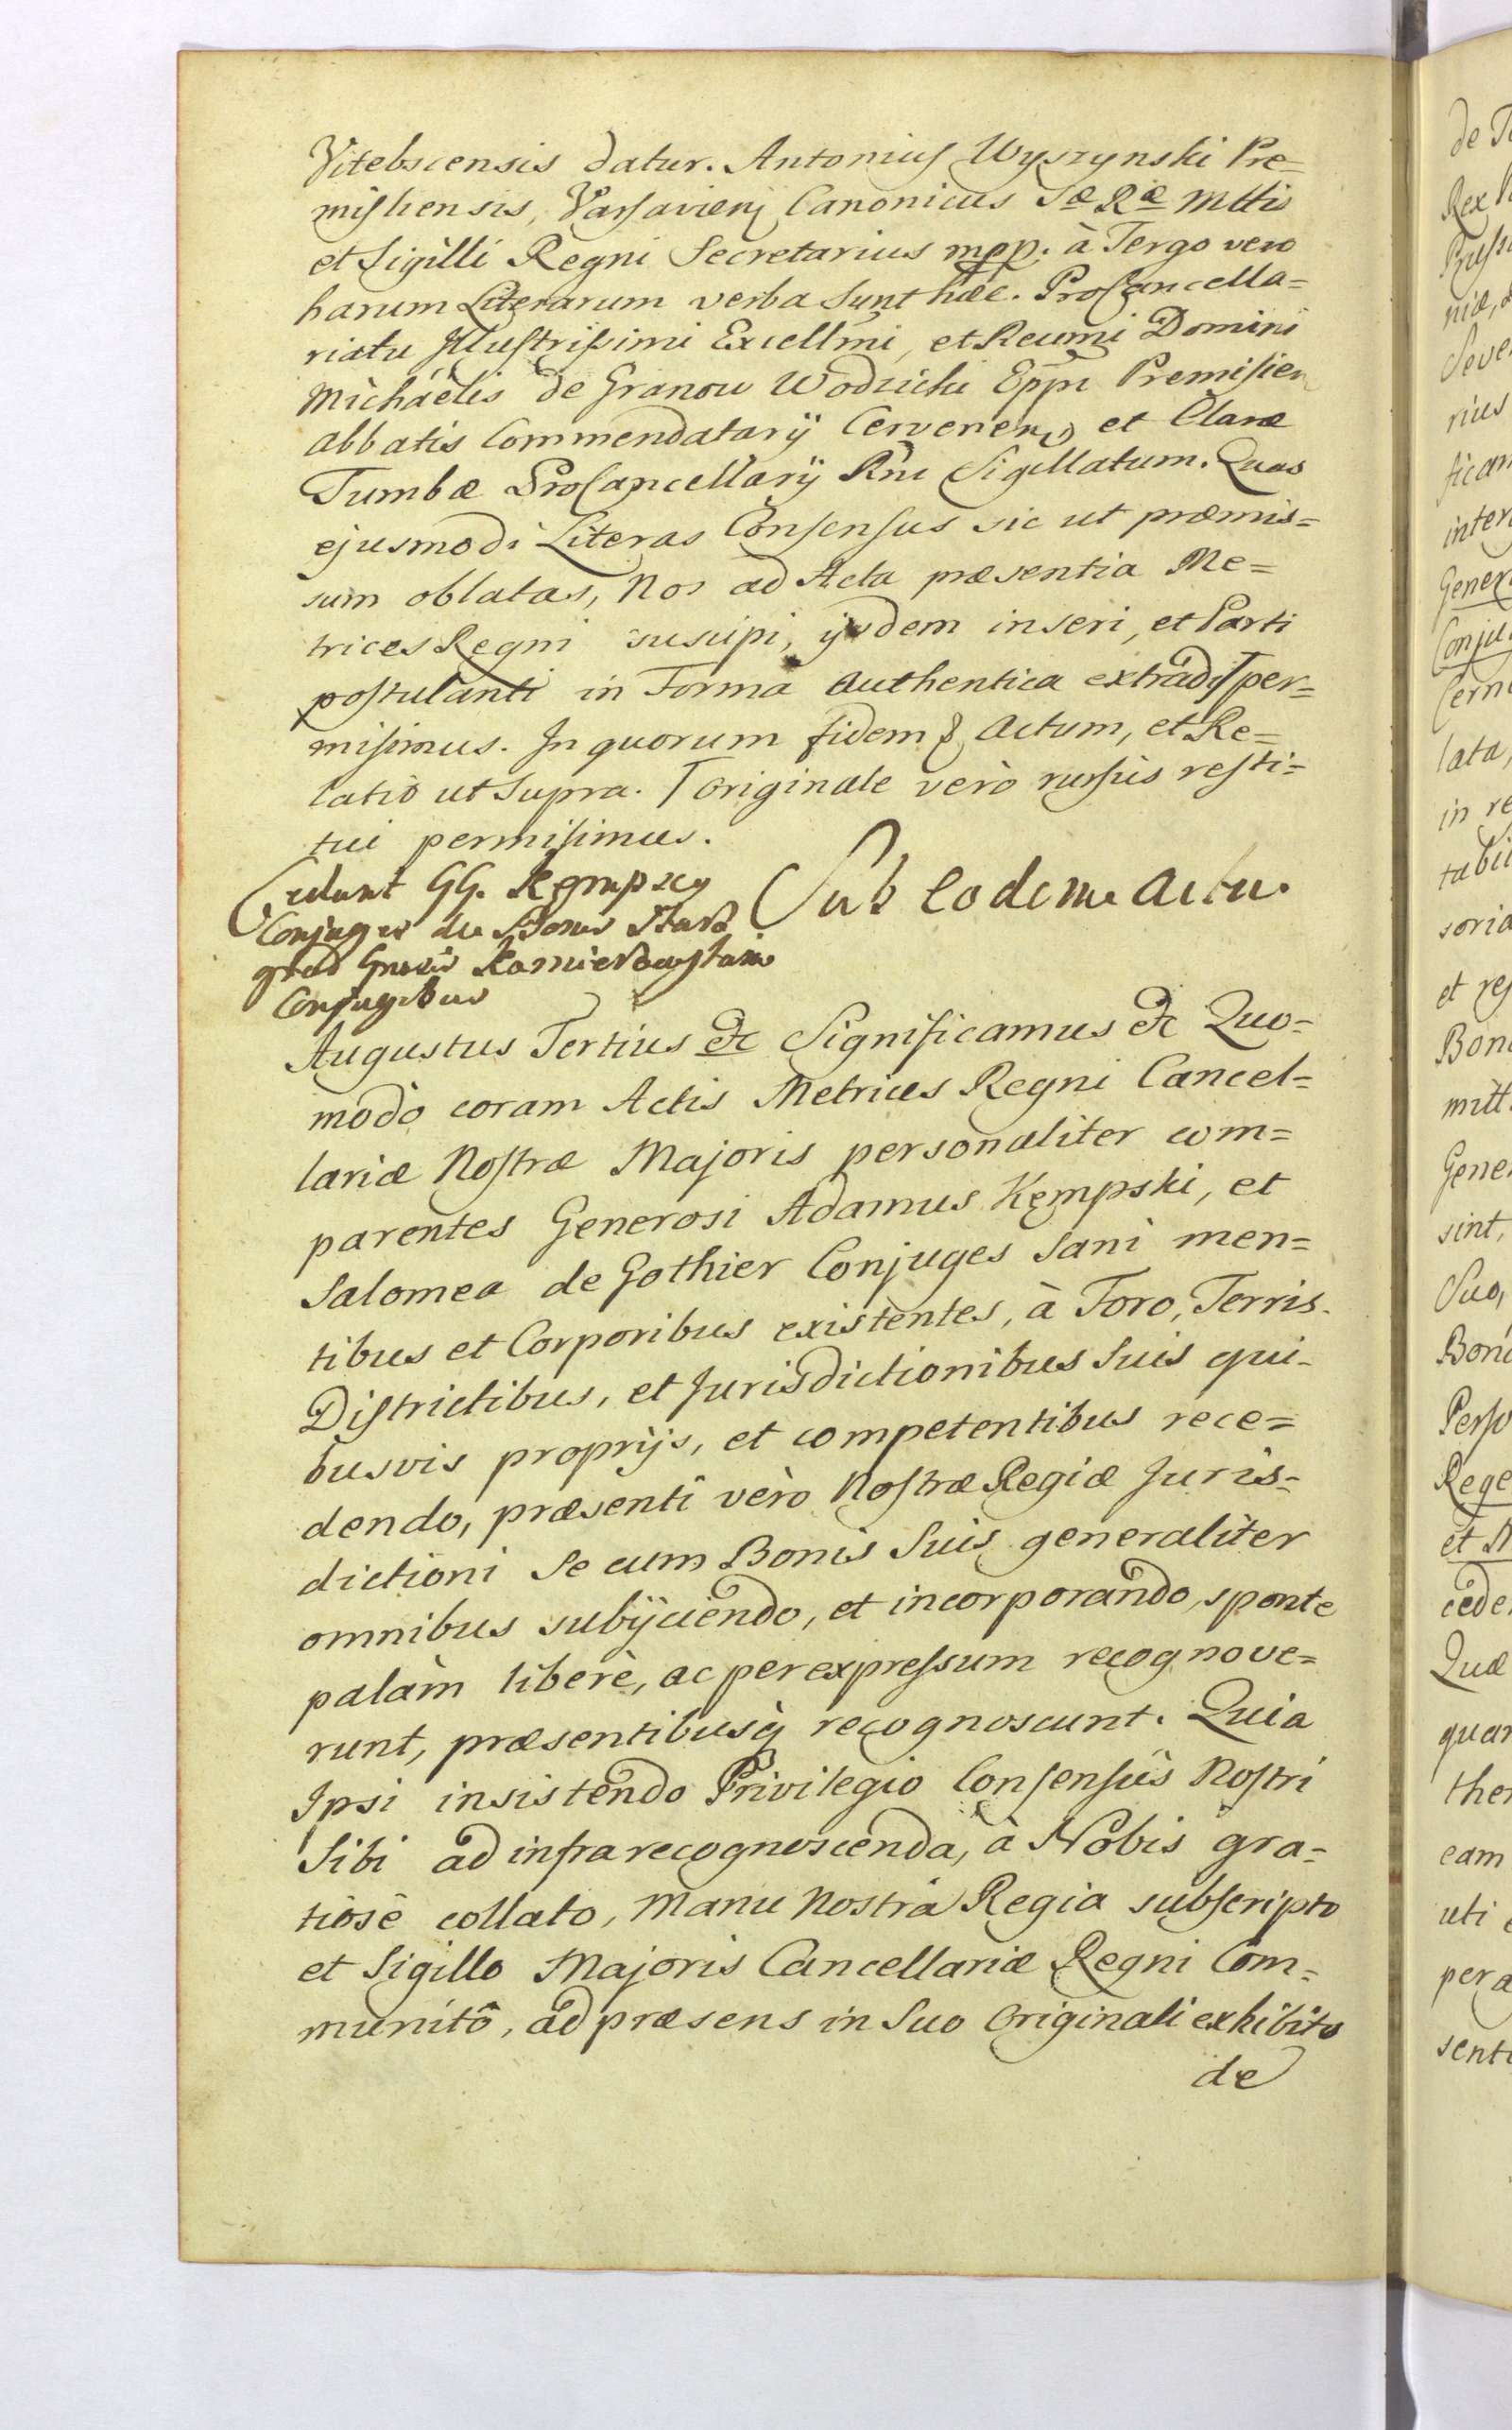 Vitebscensis datur. Antonius Wyszynski Pre=
misliensis, Varsaviens Canonicus Sæ Ræ Mttis
et Sigilli Regni Secretarius mpp. à Tergo vero
harum Literarum verba sunt hæc. ProCancella=
riatu Illustrissimi Excellmi, et Reumi Domini
Michaélis de Granow Wodzicki Eppi Premislien
abbatis Commendatarij Cervenen, et Claræ
Tumbæ ProCancellarij Rni Sigillatum. Quas
ejusmodi Literas Consensus sic ut præmis=
sum oblatas, Nos ad Acta præsentia Me=
trices Regni suscipi, ijsdem inseri, et Parti
postulanti in Forma authentica extradi per=
misimus. In quorum fidem & Actum, et Re=
latio ut Supra. Originale verò rursùs resti=
tui permisimus.
Cedunt GG. Kempscy
Conjuges de Bonis Stard
grod Gnosis
Conjugibus
Sub eodem actu.
Augustus Tertius &c Significamus &c Quo=
modo coram Actis Metrices Regni Cancel=
lariæ Nostræ Majoris personaliter com=
parentes Generosi Adamus Kęmpski, et
Salomea de Gothier Conjuges sani men=
tibus et Corporibus existentes, à Foro, Terris
Districtibus, et Jurisdictionibus Suis qui-
busvis proprijs, et competentibus rece=
dendo, præsenti vèro Nostræ Regiæ Juris=
dictioni se cum Bonis Suis generaliter
omnibus subijciendo, et incorporando, sponte
palàm liberè, ac per expressum recognove=
runt, præsentibusq recognoscunt. Quia
Ipsi insistendo Privilegio Consensûs Nostri
Sibi ad infra recognoscenda, à Nobis gra=
tiosè collato, Manu Nostrâ Regia subscripto
et Sigillo Majoris Cancellariæ Regni Com=
munitô, ad præsens in Suo Originali exhibito
de